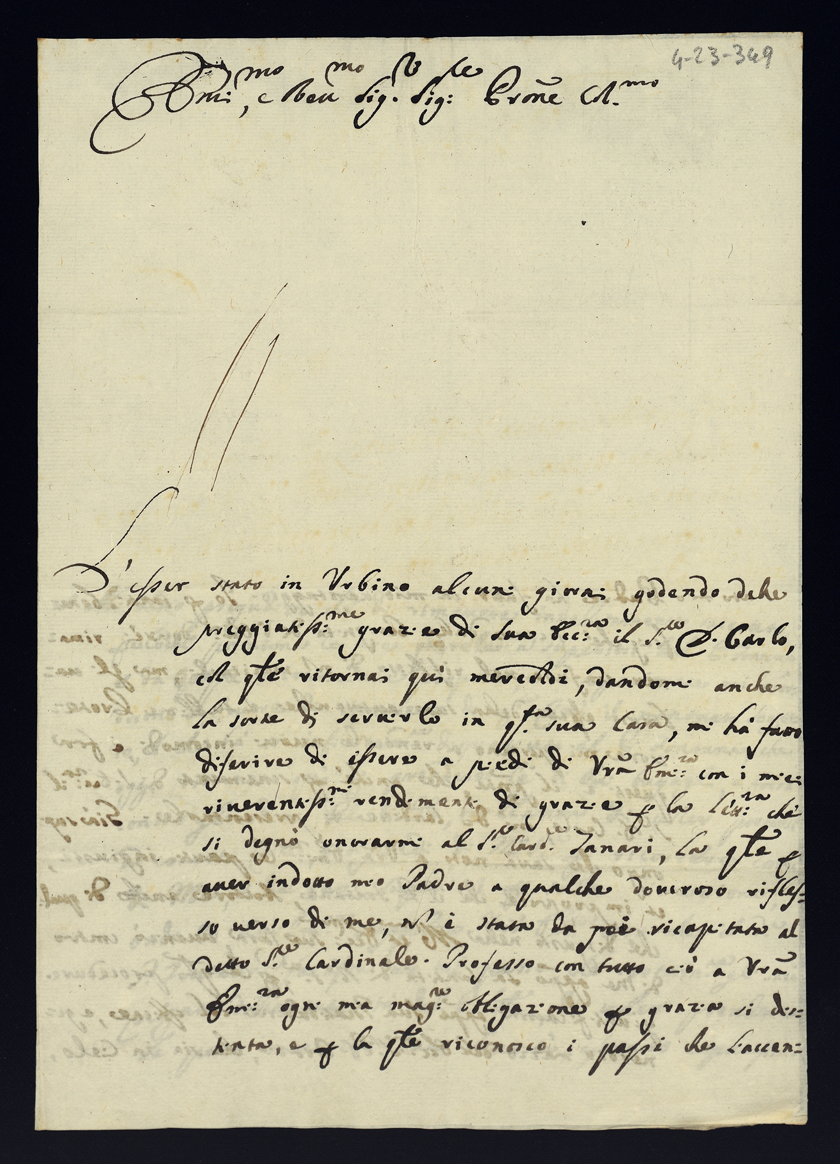 4-23-349
Em:mo, e Reu:mo Sig:r Sig:r Prone Col:mo
L'esser stato in Vrbino alcuni giorni godendo delle
preggiatiss:me grazie di Sua Ecc:za il S:re D. Carlo,
col qle ritornai qui mercoldi, dandomi anche
la sorte di seruirlo in q:ta sua Casa, mi hà fatto
diferire di essere a piedi di Vra Em:za con i miei
riuerentiss:mi rendimenti di grazie p la lett:ra che
si degnò onorarmi al S:re Card:le Tanari, la qle p
auer indotto mio Padre a qualche doueroso rifles-
so uerso di me, nõ è stata da poi ricapitata al
detto S:re Cardinale. Professo con tutto ciò a Vra
Em:za ogni mia magg:re obligazione p grazia si dis-
tinta, e p la qle riconosco i passi che l'accen-